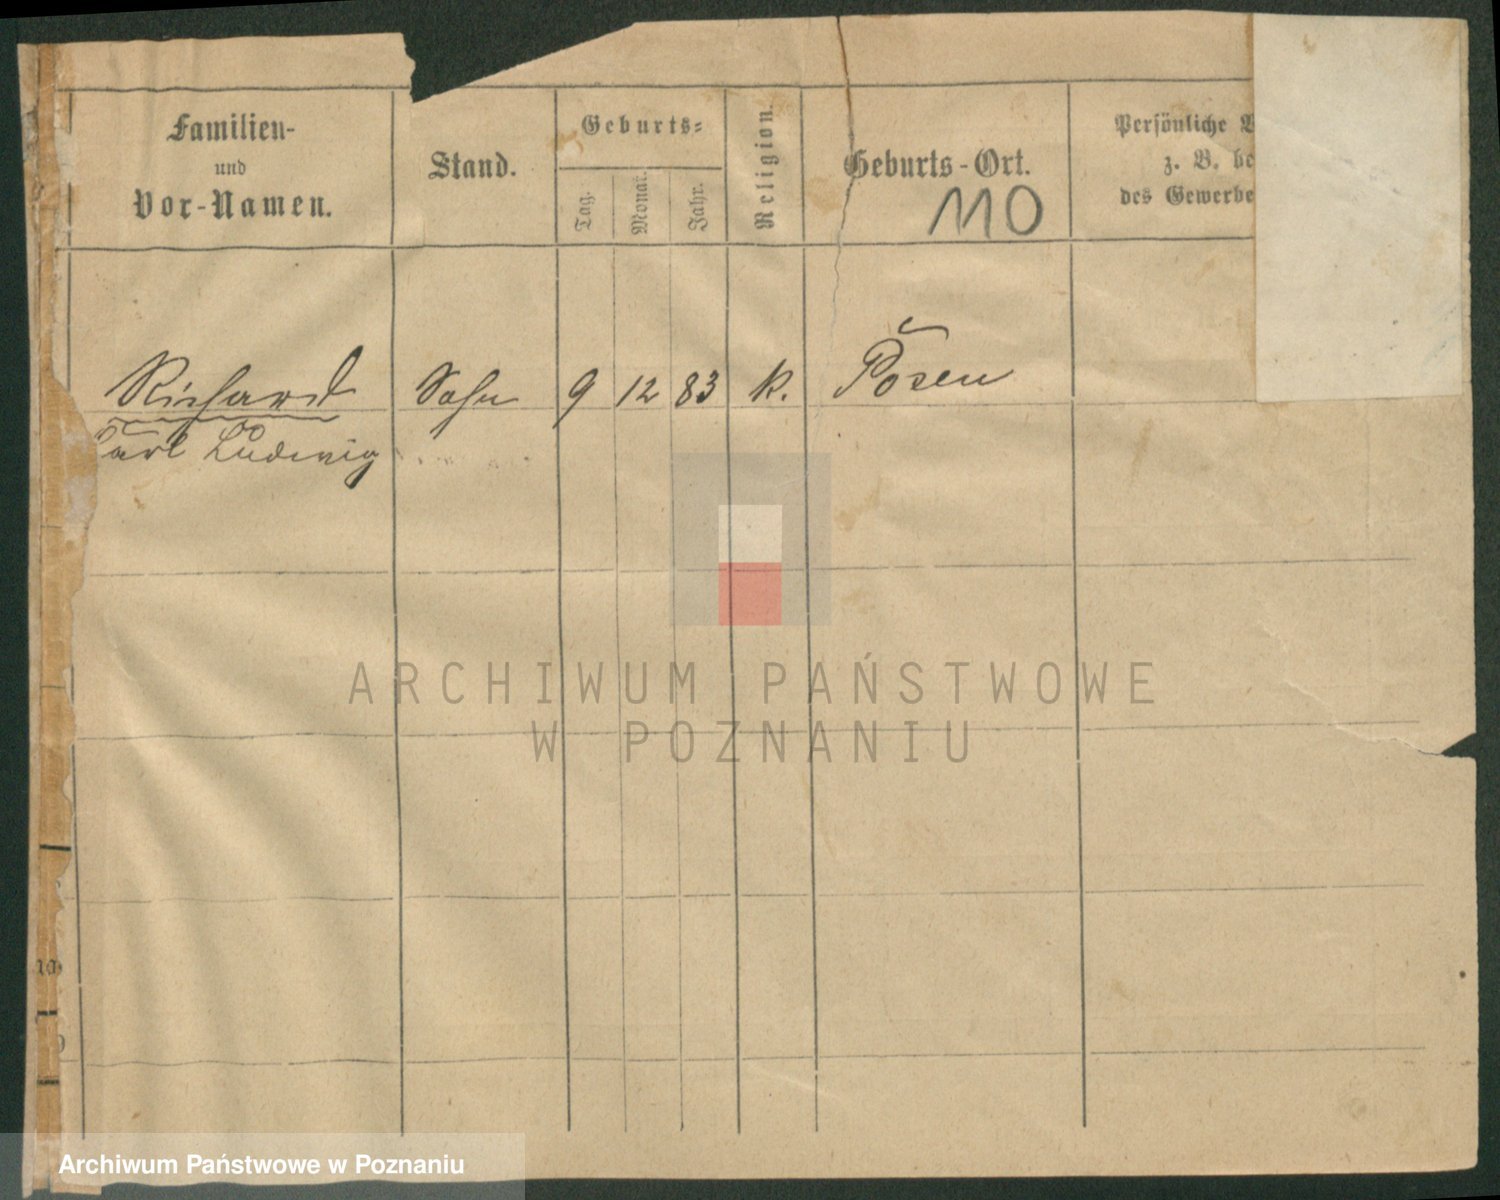 Familien-
und
Vor-Namen.
Stand.
Geburts-
Tag.
Monat.
Jahr.
Religion.
Geburts-Ort.
110
Persönliche
z. B.
des Gewerbe
Richard Sohn 9 12 83 k. Posen
Carl Ludwig
ARCHIWUM PAŃSTWOWE
W POZNANIU
Archiwum Państwowe w Poznaniu